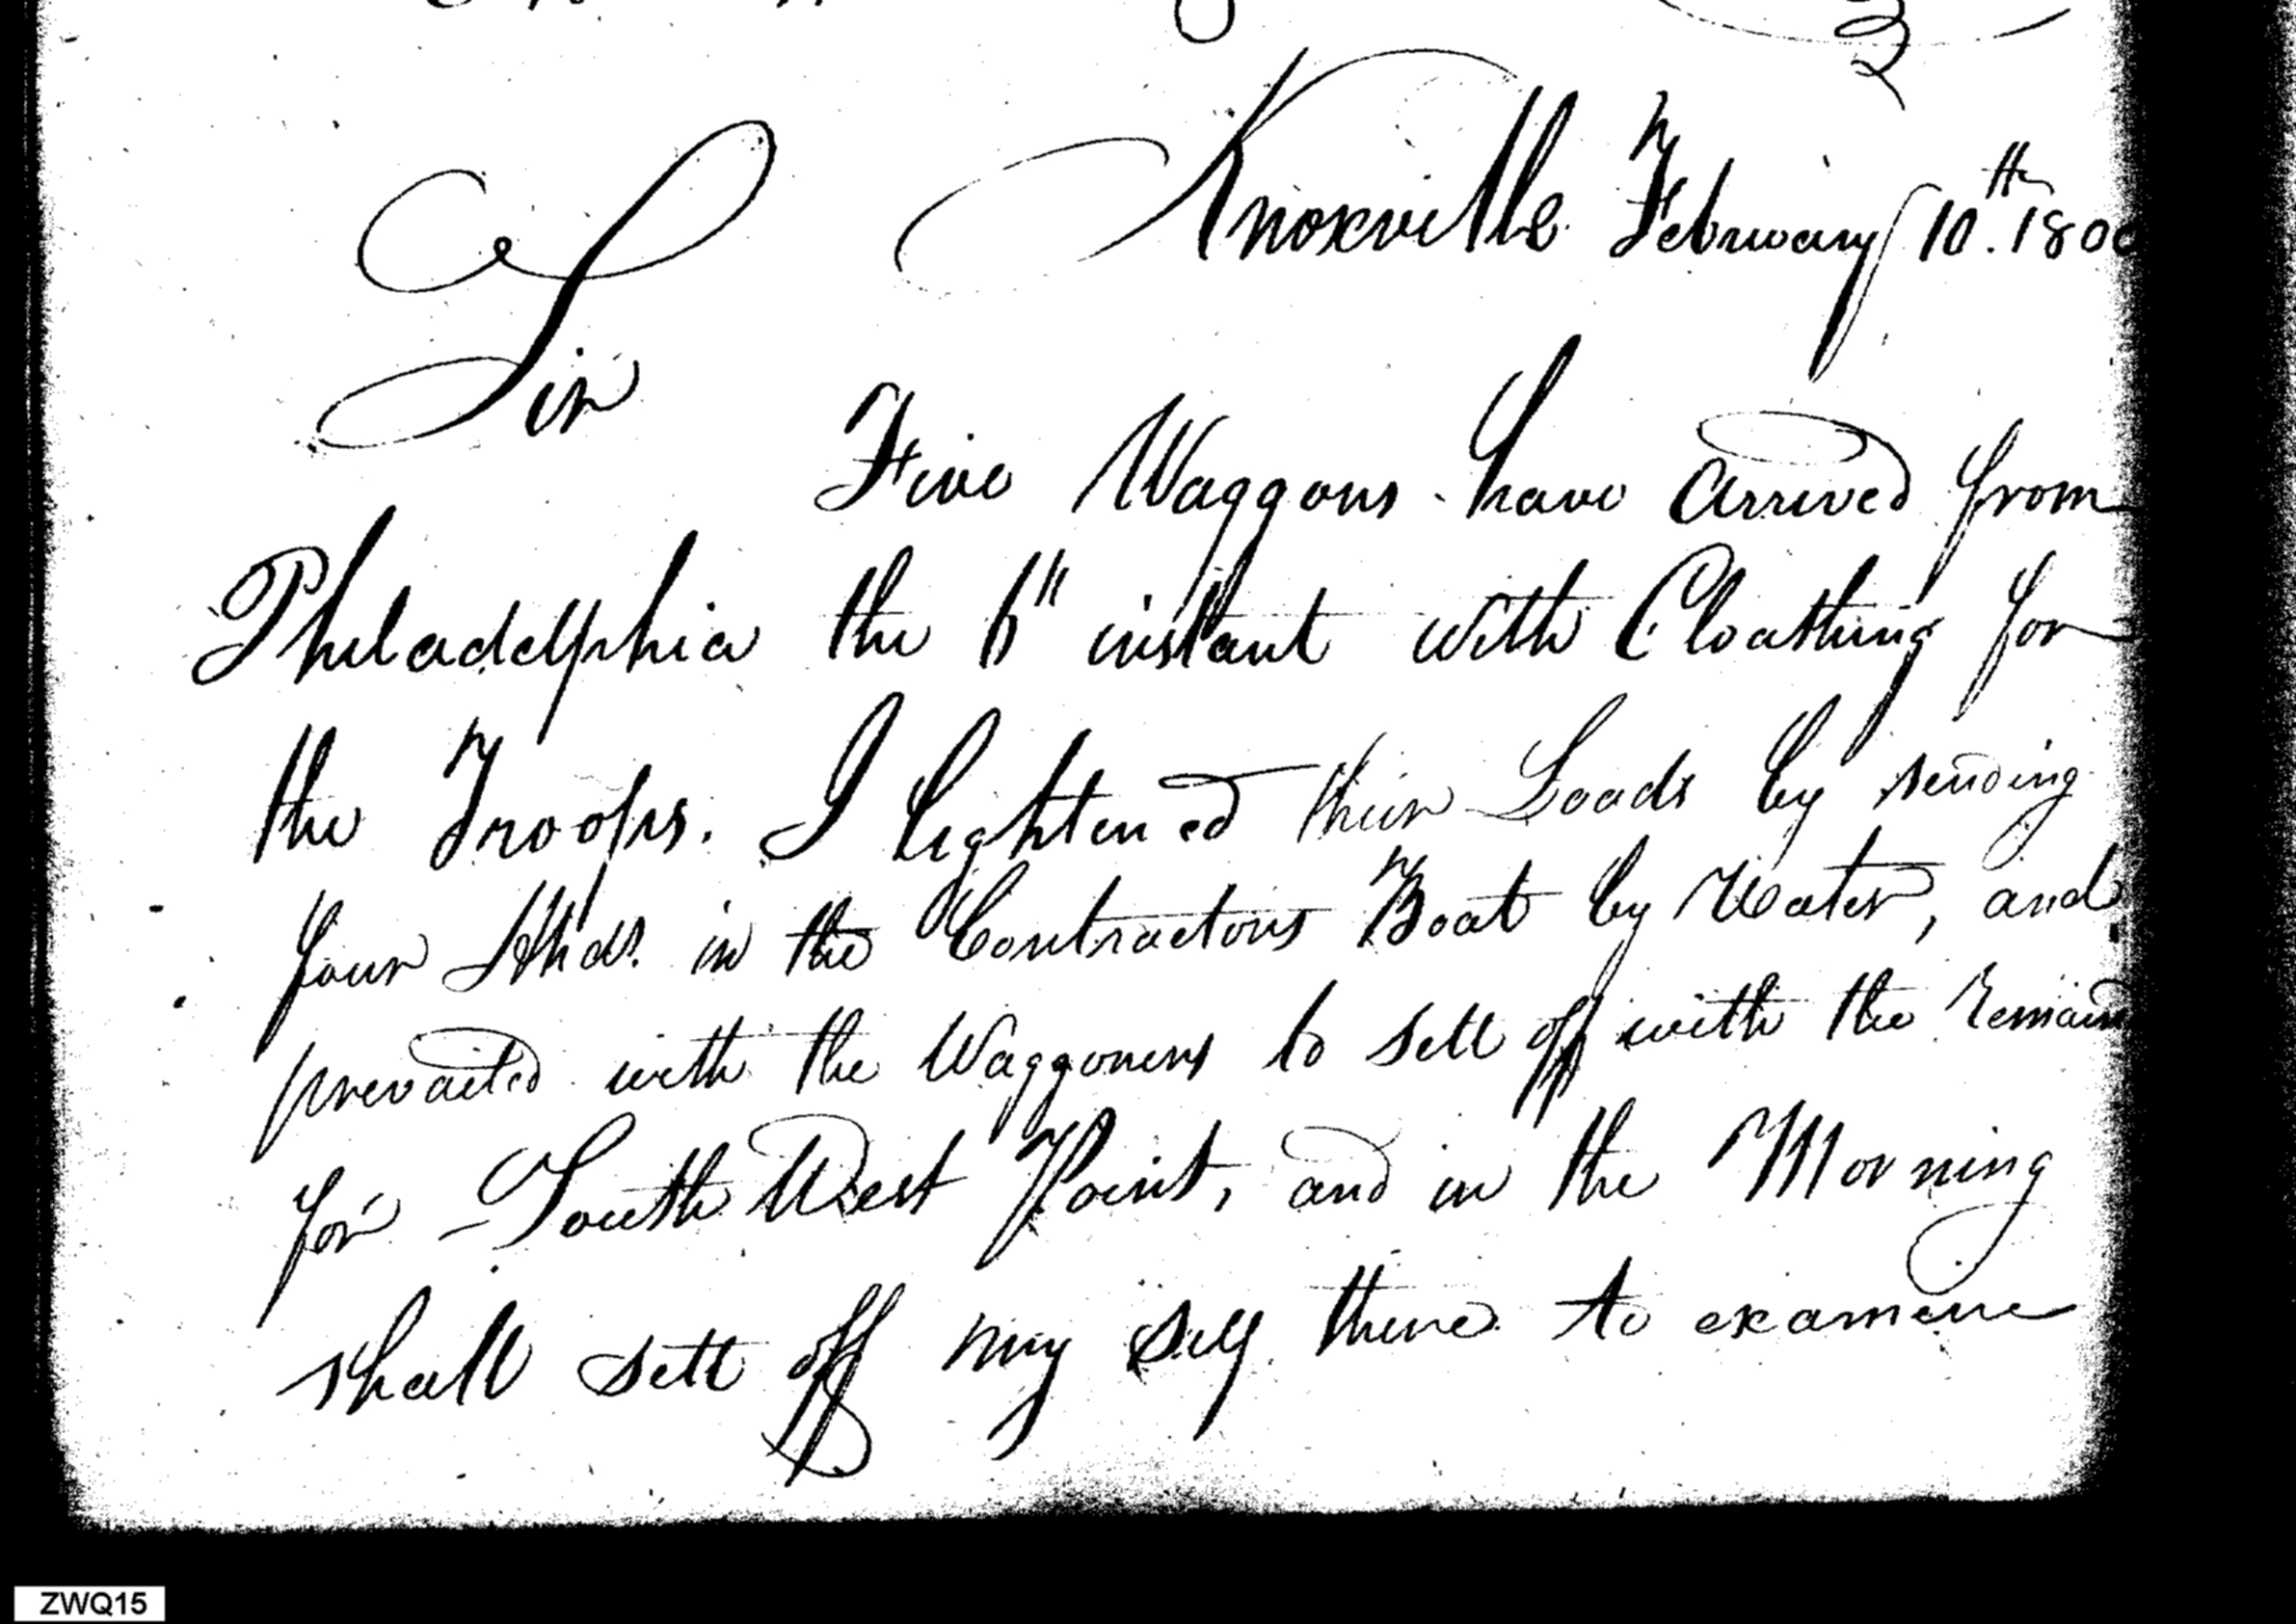 Knoxville February 10th. 1800
Sir
Five Waggons have arrived from
Philadelphia the 6th instant with Cloathing for
the Troops. I lightened their Loads by sending
four Hhds. in the Contractors Boat by Water, and
prevailed with the Waggoners to sett off with the remain
for South West Point, and in the Morning
shall sett off my self there to examine
ZWQ15